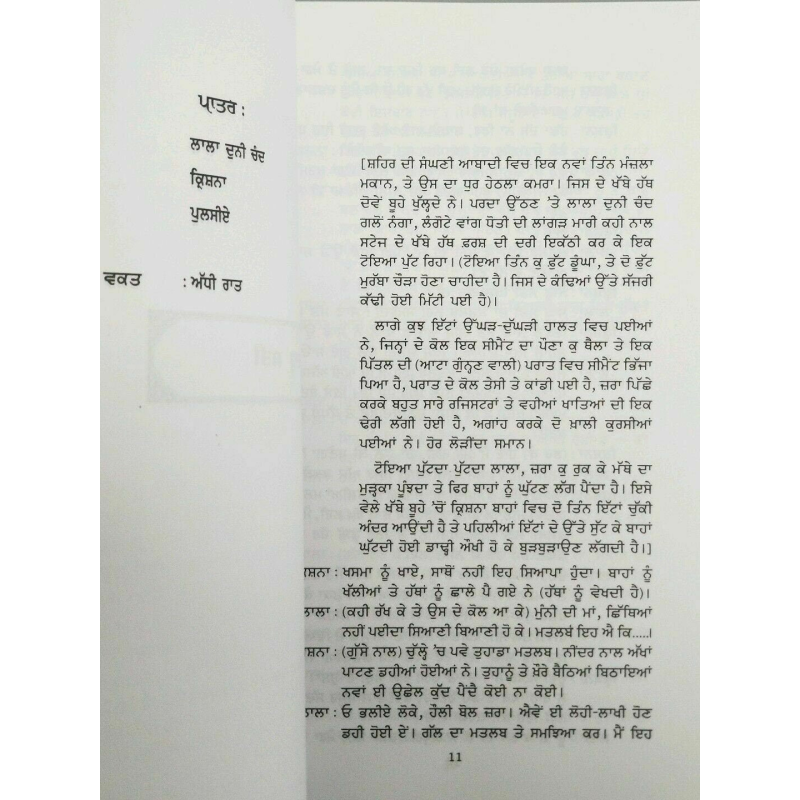 ਪਾਤਰ :
ਲਾਲਾ ਦੁਨੀ ਚੰਦ
ਕ੍ਰਿਸ਼ਨਾ
ਪੁਲਸੀਏ
ਵਕਤ : ਅੱਧੀ ਰਾਤ
[ਸ਼ਹਿਰ ਦੀ ਸੰਘਣੀ ਆਬਾਦੀ ਵਿਚ ਇਕ ਨਵਾਂ ਤਿੰਨ ਮੰਜ਼ਲਾ
ਮਕਾਨ, ਤੇ ਉਸ ਦਾ ਧੁਰ ਹੇਠਲਾ ਕਮਰਾ। ਜਿਸ ਦੇ ਖੱਬੇ ਹੱਥ
ਦੋਵੇਂ ਬੂਹੇ ਖੁੱਲ੍ਹਦੇ ਨੇ। ਪਰਦਾ ਉੱਠਣ 'ਤੇ ਲਾਲਾ ਦੁਨੀ ਚੰਦ
ਗਲੋਂ ਨੰਗਾ, ਲੰਗੋਟੇ ਵਾਂਗ ਧੋਤੀ ਦੀ ਲਾਂਗੜ ਮਾਰੀ ਕਹੀ ਨਾਲ
ਸਟੇਜ ਦੇ ਖੱਬੇ ਹੱਥ ਫ਼ਰਸ਼ ਦੀ ਦਰੀ ਇਕੱਠੀ ਕਰ ਕੇ ਇਕ
ਟੋਇਆ ਪੁੱਟ ਰਿਹਾ। (ਟੋਇਆ ਤਿੰਨ ਕੁ ਫ਼ੁੱਟ ਡੂੰਘਾ, ਤੇ ਦੋ ਫ਼ੁੱਟ
ਮੁਰੱਬਾ ਚੌੜਾ ਹੋਣਾ ਚਾਹੀਦਾ ਹੈ। ਜਿਸ ਦੇ ਕੰਢਿਆਂ ਉੱਤੇ ਸੱਜਰੀ
ਕੱਢੀ ਹੋਈ ਮਿੱਟੀ ਪਈ ਹੈ)।
ਲਾਗੇ ਕੁਝ ਇੱਟਾਂ ਉੱਘੜ-ਦੁੱਘੜੀ ਹਾਲਤ ਵਿਚ ਪਈਆਂ
ਨੇ, ਜਿਨ੍ਹਾਂ ਦੇ ਕੋਲ ਇਕ ਸੀਮੈਂਟ ਦਾ ਪੌਣਾ ਕੁ ਥੈਲਾ ਤੇ ਇਕ
ਪਿੱਤਲ ਦੀ (ਆਟਾ ਗੁੰਨ੍ਹਣ ਵਾਲੀ) ਪਰਾਤ ਵਿਚ ਸੀਮੈਂਟ ਭਿੱਜਾ
ਪਿਆ ਹੈ, ਪਰਾਤ ਦੇ ਕੋਲ ਤੇਸੀ ਤੇ ਕਾਂਡੀ ਪਈ ਹੈ, ਜ਼ਰਾ ਪਿੱਛੇ
ਕਰਕੇ ਬਹੁਤ ਸਾਰੇ ਰਜਿਸਟਰਾਂ ਤੇ ਵਹੀਆਂ ਖਾਤਿਆਂ ਦੀ ਇਕ
ਢੇਰੀ ਲੱਗੀ ਹੋਈ ਹੈ, ਅਗਾਂਹ ਕਰਕੇ ਦੋ ਖ਼ਾਲੀ ਕੁਰਸੀਆਂ
ਪਈਆਂ ਨੇ। ਹੋਰ ਲੋੜੀਂਦਾ ਸਮਾਨ।
ਟੋਇਆ ਪੁੱਟਦਾ ਪੁੱਟਦਾ ਲਾਲਾ, ਜ਼ਰਾ ਕੁ ਰੁਕ ਕੇ ਮੱਥੇ ਦਾ
ਮੁੜ੍ਹਕਾ ਪੂੰਝਦਾ ਤੇ ਫਿਰ ਬਾਹਾਂ ਨੂੰ ਘੁੱਟਣ ਲੱਗ ਪੈਂਦਾ ਹੈ। ਇਸੇ
ਵੇਲੇ ਖੱਬੇ ਬੂਹੇ 'ਚੋਂ ਕ੍ਰਿਸ਼ਨਾ ਬਾਹਾਂ ਵਿਚ ਦੋ ਤਿੰਨ ਇੱਟਾਂ ਚੁੱਕੀ
ਅੰਦਰ ਆਉਂਦੀ ਹੈ ਤੇ ਪਹਿਲੀਆਂ ਇੱਟਾਂ ਦੇ ਉੱਤੇ ਸੁੱਟ ਕੇ ਬਾਹਾਂ
ਘੁੱਟਦੀ ਹੋਈ ਡਾਢ੍ਹੀ ਔਖੀ ਹੋ ਕੇ ਬੁੜਬੁੜਾਉਣ ਲੱਗਦੀ ਹੈ।]
ਸ਼ਨਾ : ਖਸਮਾ ਨੂੰ ਖਾਏ, ਸਾਥੋਂ ਨਹੀਂ ਇਹ ਸਿਆਪਾ ਹੁੰਦਾ। ਬਾਹਾਂ ਨੂੰ
ਖੱਲੀਆਂ ਤੇ ਹੱਥਾਂ ਨੂੰ ਛਾਲੇ ਪੈ ਗਏ ਨੇ (ਹੱਥਾਂ ਨੂੰ ਵੇਖਦੀ ਹੈ)।
ਲਾਲਾ : (ਕਹੀ ਰੱਖ ਕੇ ਤੇ ਉਸ ਦੇ ਕੋਲ ਆ ਕੇ) ਮੁੰਨੀ ਦੀ ਮਾਂ, ਛਿੱਥਿਆਂ
ਨਹੀਂ ਪਈਦਾ ਸਿਆਣੀ ਬਿਆਣੀ ਹੋ ਕੇ। ਮਤਲਬ ਇਹ ਐ ਕਿ.....।
ਸ਼ਨਾ : (ਗੁੱਸੇ ਨਾਲ) ਚੁੱਲ੍ਹੇ 'ਚ ਪਵੇ ਤੁਹਾਡਾ ਮਤਲਬ। ਨੀਂਦਰ ਨਾਲ ਅੱਖਾਂ
ਪਾਟਣ ਡਹੀਆਂ ਹੋਈਆਂ ਨੇ। ਤੁਹਾਨੂੰ ਤੇ ਖ਼ੌਰੇ ਬੈਠਿਆਂ ਬਿਠਾਇਆਂ
ਨਵਾਂ ਈ ਉਛੇਲ ਕੁੱਦ ਪੈਂਦੈ ਕੋਈ ਨਾ ਕੋਈ।
ਲਾਲਾ : ਓ ਭਲੀਏ ਲੋਕੇ, ਹੌਲੀ ਬੋਲ ਜ਼ਰਾ। ਐਵੇਂ ਈ ਲੋਹੀ-ਲਾਖੀ ਹੋਣ
ਡਹੀ ਹੋਈ ਏਂ। ਗੱਲ ਦਾ ਮਤਲਬ ਤੇ ਸਮਝਿਆ ਕਰ। ਮੈਂ ਇਹ
11